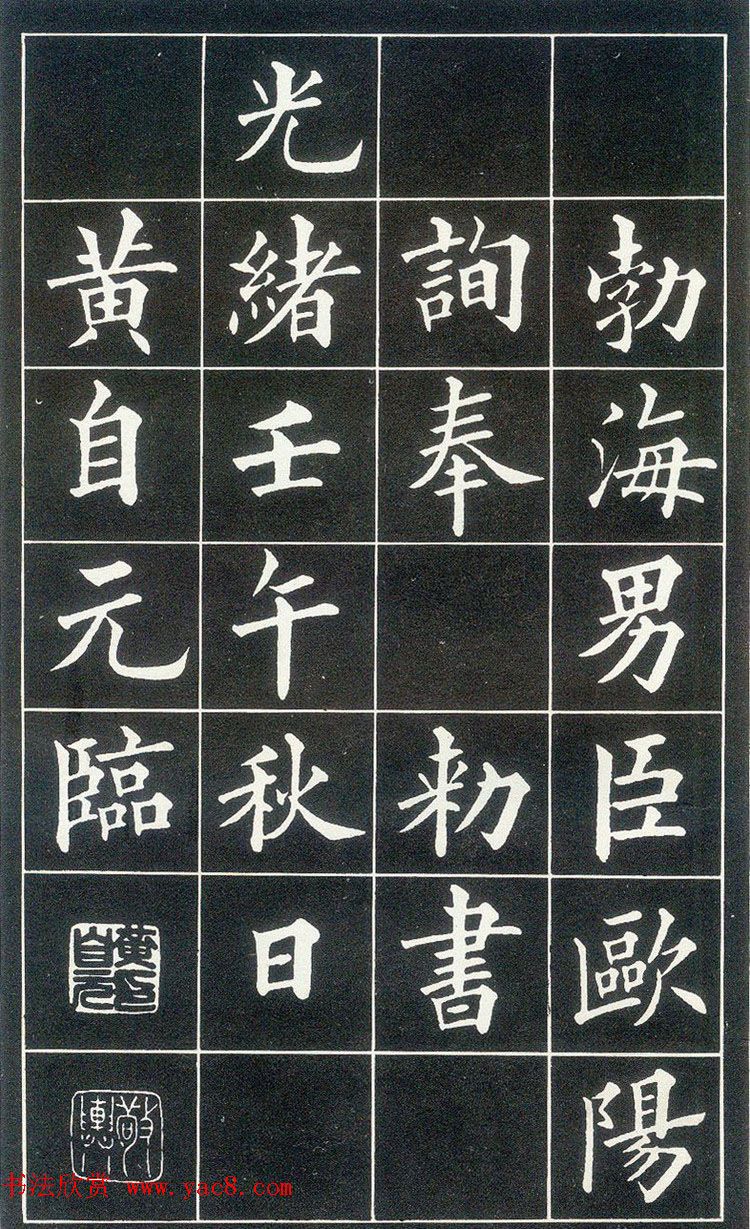 勃海男臣歐陽
詢奉勅書
光緒壬午秋日
黄自元臨
黃自元印
敬輿
书法欣赏 www.yac8.com